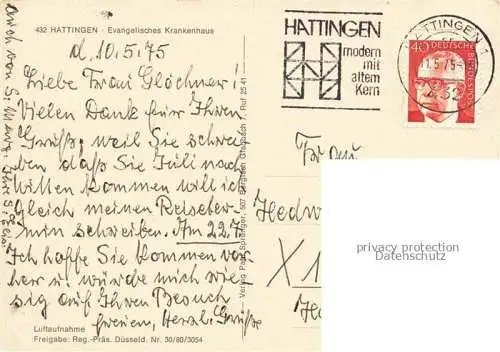 432 HATTINGEN · Evangelisches Krankenhaus
d. 10.5.75
Liebe Frau Glöckner!
Vielen Dank für Ihren
Gruß, weil Sie schrei
ben daß Sie Juli nach
Witten kommen will ich
gleich meinen Reiseter-
min schreiben. Am 22.7.
Ich hoffe Sie kommen vor
her u. würde mich rie
sig auf Ihren Besuch
freuen, Herzl. Grüße
auch von S. Marg. Ihre S.
Luftaufnahme
Freigabe: Reg.-Präs. Düsseld. Nr. 30/80/3054
HATTINGEN
modern
mit
altem
Kern
HATTINGEN 1
11.5.75
432
40
DEUTSCHE
BUNDESPOST
Frau
Hedw
X 1
privacy protection
Datenschutz